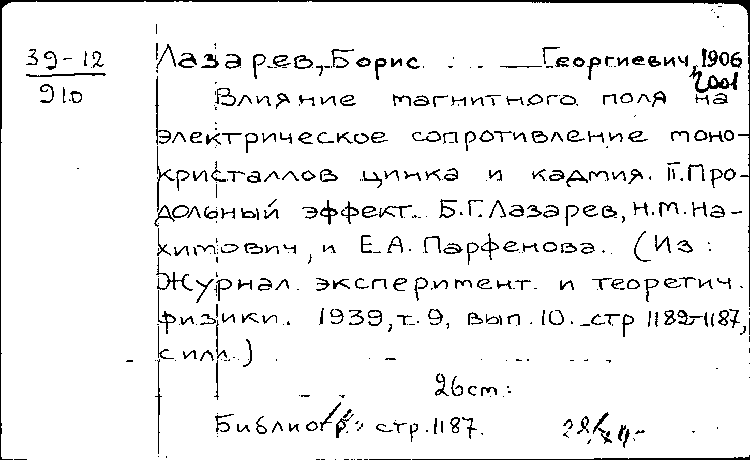 39-12
910
Лазарев, Борис Георгиевич, 1906
2001
Влияние магнитного поля на
электрическое сопротивление моно-
кристаллов цинка и кадмия. II. Про-
дольный эффект. Б.Г. Лазарев, Н.М. На-
химович, и Е.А. Парфенова. (Из:
Журнал эксперимент. и теоретич.
физики. 1939, т. 9, вып. 10. стр 1182-1187,
с илл.)
26 ст:
Библиогр: стр. 1187.